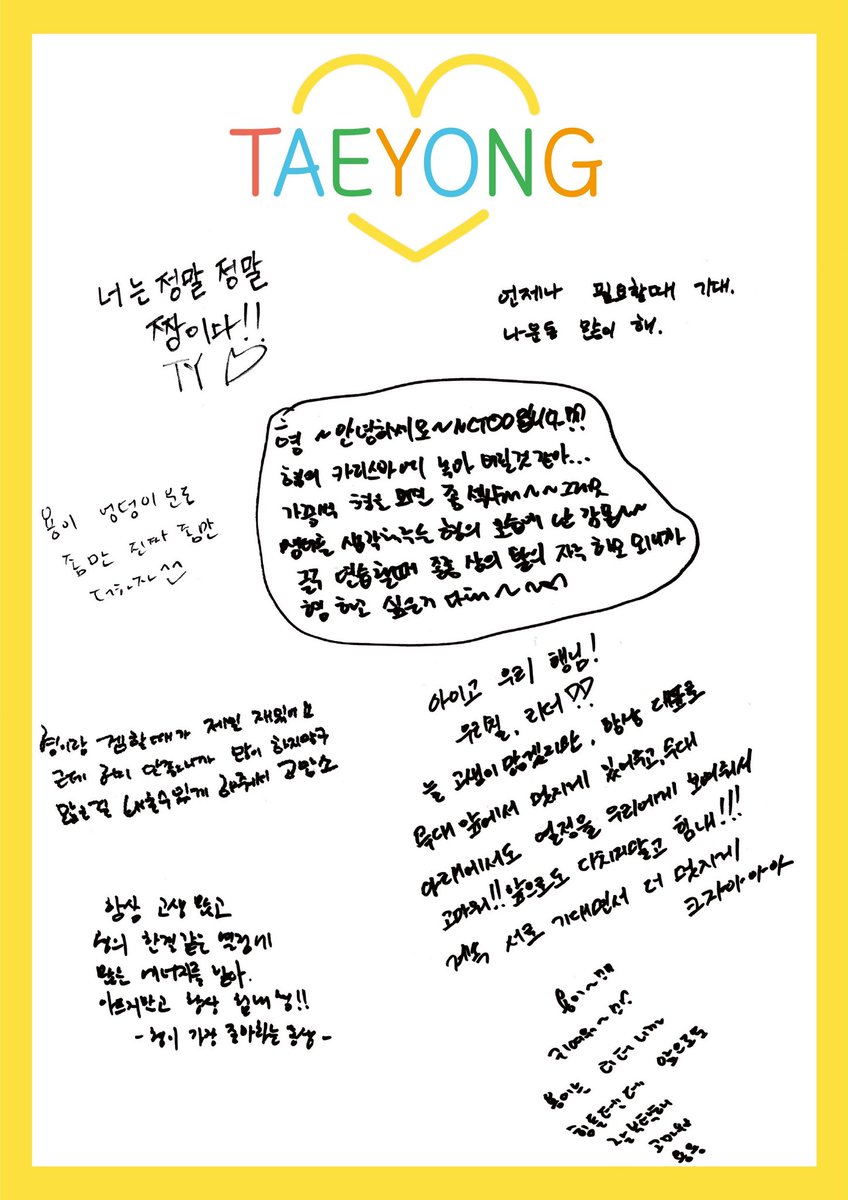 TAEYONG
너는 정말 정말
짱이다!!
TY
언제나 필요할때 기대.
나눈둥 많이 해.
형 ~안녕하세요~ NCTOO입니다!!
형의 카리스마에 녹아 버릴것같아...
가끔씩 형을 보면 좀 섹시~~ 그리고
생각하는 형의 모습에 난 감동~~
꼭 연습할때
형 하고 싶은거 다해~~
용이 엉덩이 분도
좀만 진짜 좀만
더하자
형이랑 겜할때가 제일 재밌어요
근데 많이 하지말구
많은걸 할수있게 해줘서 고맙소
아이고 우리 행님!
우리팀, 리더
늘 고생이 많겠지만, 항상 대표로
무대 앞에서 멋지게 있어주고, 무대
아래에서도 열정을 우리에게 보여줘서
고마워!! 앞으로도 다치지말고 힘내!!!
계속 서로 기대면서 더 멋지게
크자아아아
항상 고생 많고
형의 한결같은 열정에
많은 에너지를 받아.
아프지말고 항상 힘내 형!!
-형이 가장 좋아하는 동생-
용이~
귀여워~
용이는 리더니까
힘들텐데 앞으로도
잘부탁해
고마워
용용